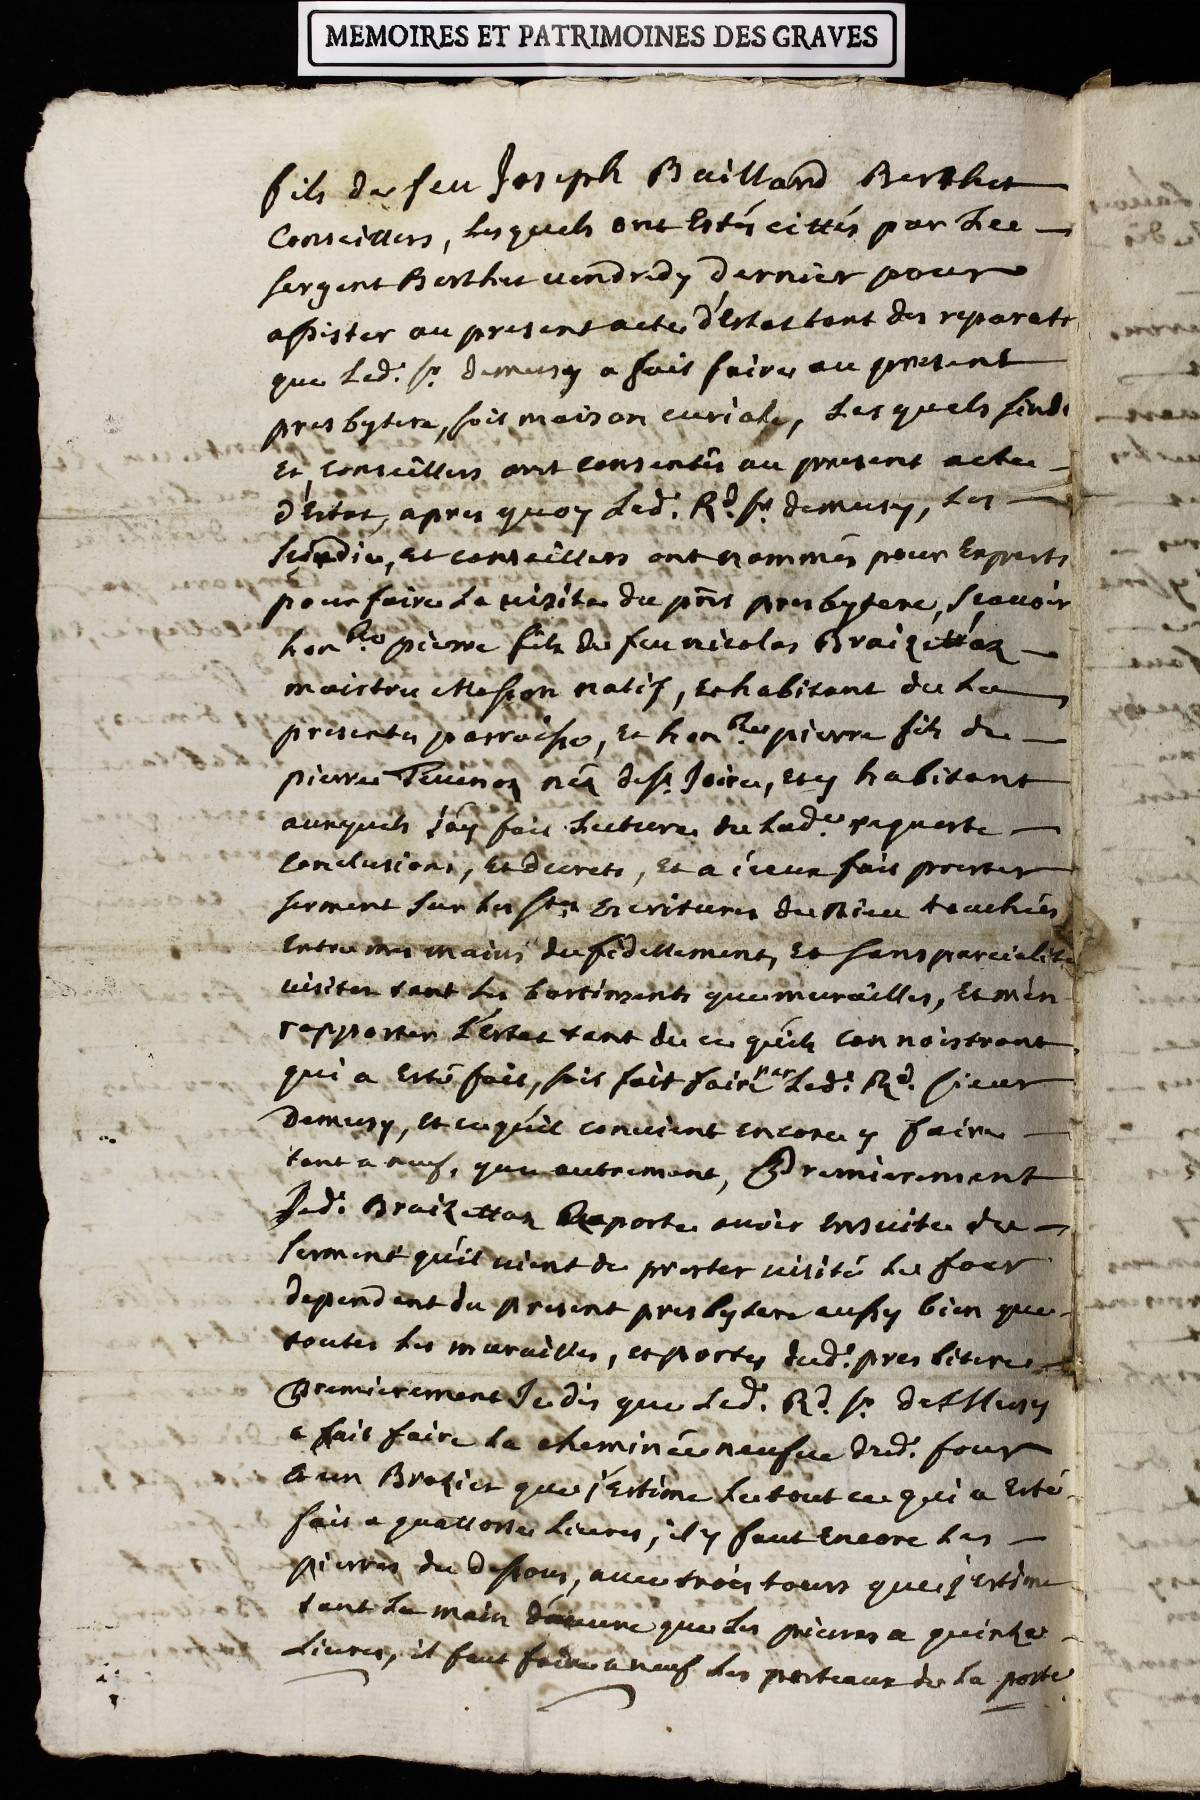 MEMOIRES ET PATRIMOINES DES GRAVES
fils de feu Joseph Baillard Berthet
Conseillers, Lesquels ont Estés cittés par Lee
sergent Berthet vendredy dernier pour
assister au present acte d'Estat tant des reparats
que Led. sr. demusy a fait faire au present
presbytere, soit maison curiale, Lesquels sindi
Et Conseillers ont consentis au present acte
d'Estat, apres quoy Led. Rd. sr. demusy, Les
scindic, Et conseillers ont nommés pour Experts
pour faire La visite du pnt presbytere, sçavoir
honble. pierre fils de feu nicolas Braizettaz
maistre Masson natif, Et habitant de La
presente parroisse, Et honble. pierre fils de
pierre Tevenoz néz de st. Joire, Et y habitant
auxquels j'ay fait Lecture de Lade. requeste
Conclusions, Et decrets, Et a iceux fait prester
serment sur Les stes Escritures de Dieu touchées
Entre mes mains de fidellement, Et sans parcialité
visiter tant Les bastiments que murailles, Et m'en
rapporter L'Estat tant de ce qu'ils connoistront
qui a Esté fait, soit fait faire par Led. Rd. sieur
Demusy, Et ce qu'il convient encore y faire
tant a neuf, que autrement, Premierement
Led. Braizettaz Raporte avoir Ensuite du
serment qu'il vient de prester visité Le four
dependent du present presbytere aussy bien que
toutes Les murailles, et portes dud. presbitere
Premierement Je dis que Led. Rd. sr. de Musy
a fait faire La cheminée neufve dud. four
& un Brazier que j'Estime Le tout ce qui a Esté
fait a quattorse Livres, il y faut Encore Les
pierres de Dessous, avec trois tours que j'Estime
tant La main d'oeuvre que Les pierres a quinze
Livres, il faut faire a neuf Les posteaux de La porte